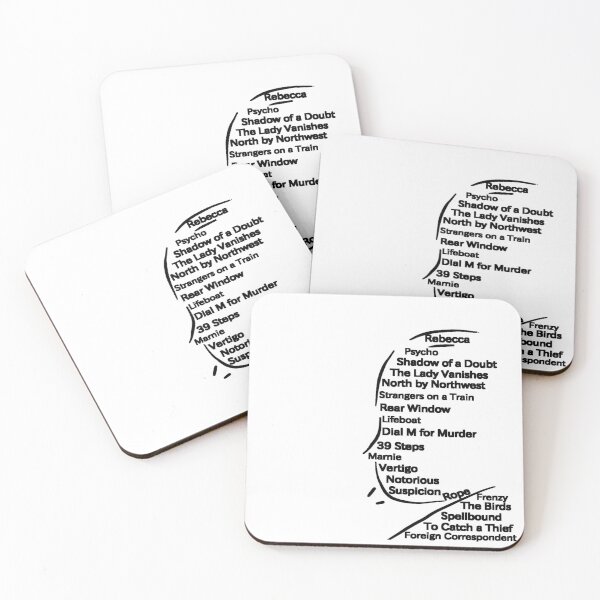 Rebecca
Psycho
Shadow of a Doubt
The Lady Vanishes
North by Northwest
Strangers on a Train
Window
Lifeboat
for Murder
Rebecca
Psycho
Shadow of a Doubt
The Lady Vanishes
North by Northwest
Strangers on a Train
Rear Window
Lifeboat
Dial M for Murder
39 Steps
Marnie
Vertigo
Frenzy
The Birds
a Thief
Rebecca
Psycho
Shadow of a Doubt
The Lady Vanishes
North by Northwest
Strangers on a Train
Rear Window
Lifeboat
Dial M for Murder
39 Steps
Marnie
Vertigo
Notorious
Rebecca
Psycho
Shadow of a Doubt
The Lady Vanishes
North by Northwest
Strangers on a Train
Rear Window
Lifeboat
Dial M for Murder
39 Steps
Marnie
Vertigo
Notorious
Suspicion Rope Frenzy
The Birds
Spellbound
To Catch a Thief
Foreign Correspondent